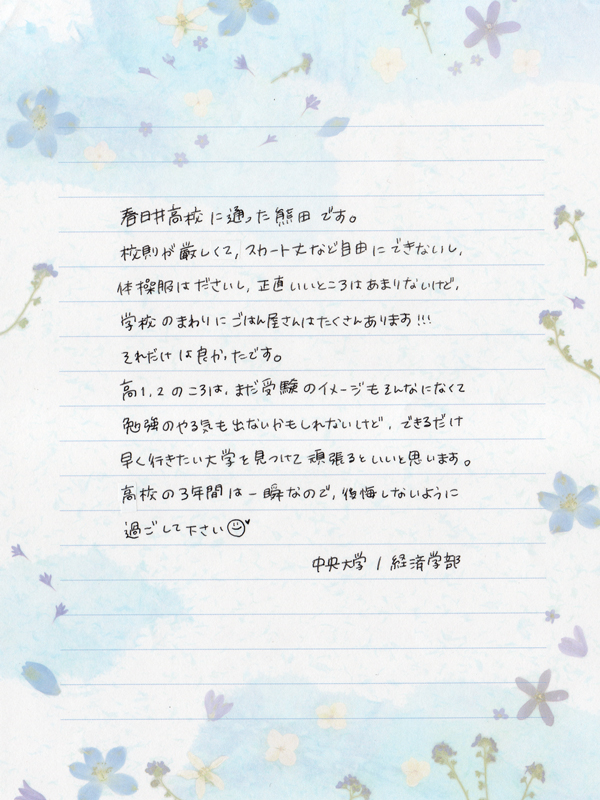 春日井高校に通った熊田です。
校則が厳しくて、スカート丈など自由にできないし、
体操服はださいし、正直いいところはあまりないけど、
学校のまわりにごはん屋さんはたくさんあります!!!
それだけは良かったです。
高1,2のころは、まだ受験のイメージもそんなになくて
勉強のやる気も出ないかもしれないけど、できるだけ
早く行きたい大学を見つけて頑張るといいと思います。
高校の3年間は一瞬なので、後悔しないように
過ごして下さい
中央大学 / 経済学部